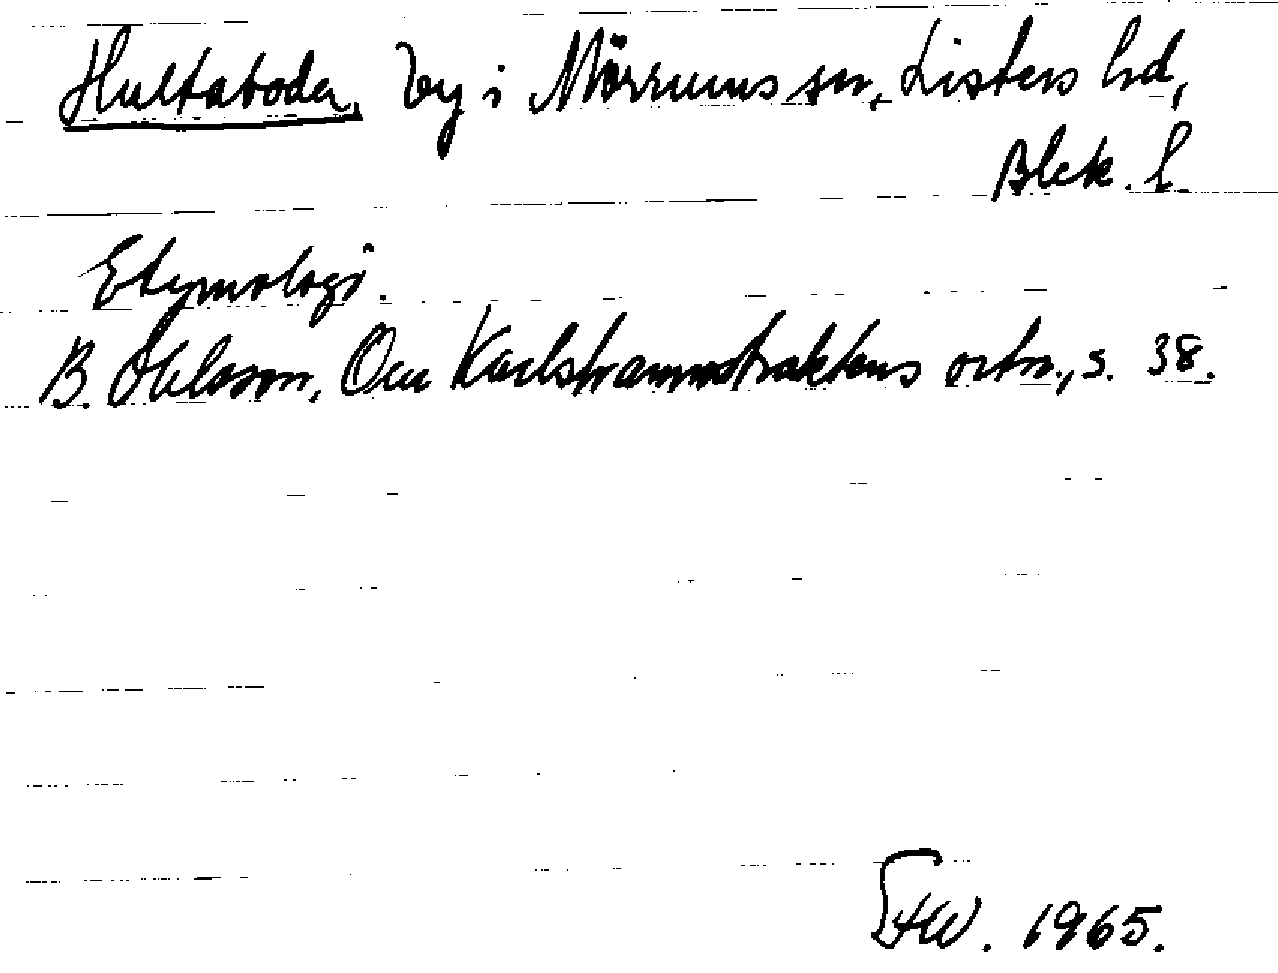 Hultaboda, by i Mörrums sn, Listers hd,
Blek. l.
Etymologi.
B. Ohlsson, Om Karlshamnstraktens ortn., s. 38.
1965.